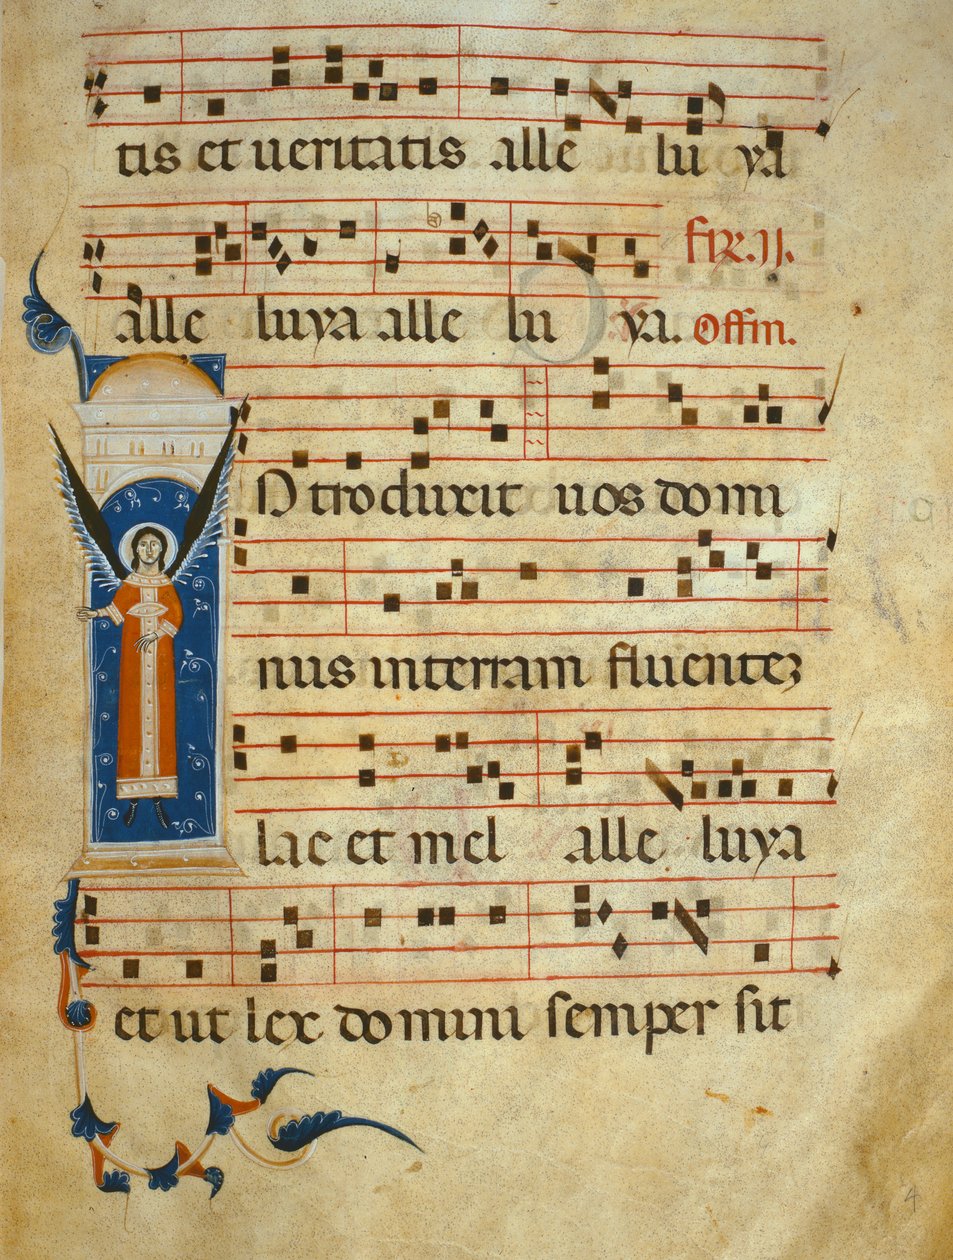 tis et ueritatis alle lu ya
alle luya alle lu ya. fir. ij.
Offm.
Ntroduxit uos domi
nus interram fluentez
lac et mel alle luya
et ut lex domini semper sit
4